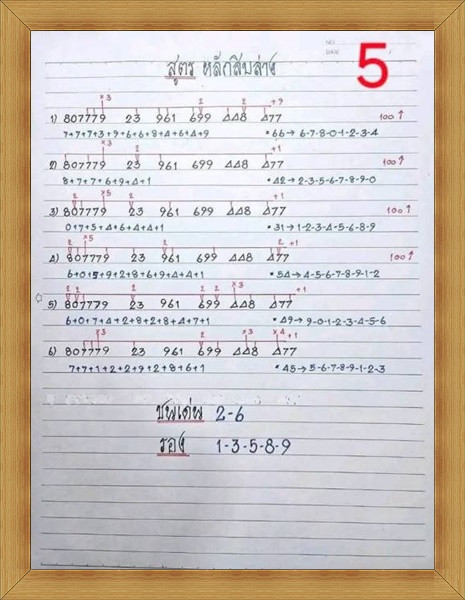 5
สูตร หลักสิบล่าง
x3 2 2 +9
1) 807779 23 961 699 448 477 100↑
7+7+7+3+9+6+6+8+4+6+4+9 • 66→ 6-7-8-0-1-2-3-4
x3 2 +1
2) 807779 23 961 699 448 477 100↑
8+7+7+6+9+4+1 • 42→ 2-3-5-6-7-8-9-0
2 x5 2 +1
3) 807779 23 961 699 448 477 100↑
0+7+5+4+6+4+4+1 • 31→ 1-2-3-4-5-6-8-9
2 x5 2 2 +1
4) 807779 23 961 699 448 477 100↑
6+0+5+9+2+8+6+9+4+4+1 • 54→ 4-5-6-7-8-9-1-2
2 2 2 2 2 x3 +1
5) 807779 23 961 699 448 477
6+0+7+4+2+8+2+8+4+7+1 • 49→ 9-0-1-2-3-4-5-6
x3 2 x3 x4 +1
6) 807779 23 961 699 448 477
7+7+1+2+2+9+2+8+6+1 • 45→ 5-6-7-8-9-1-2-3
ชนเด่น 2-6
รอง 1-3-5-8-9